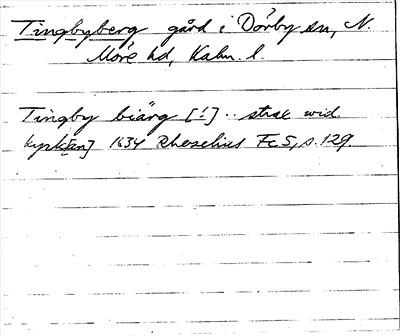 Tingbyberg gård i Dörby sn, N.
Möre hd, Kalm. l.
Tingby biärg [!] .. strax wid
kyrkan] 1634 Rhezelius Fc5, s. 129.